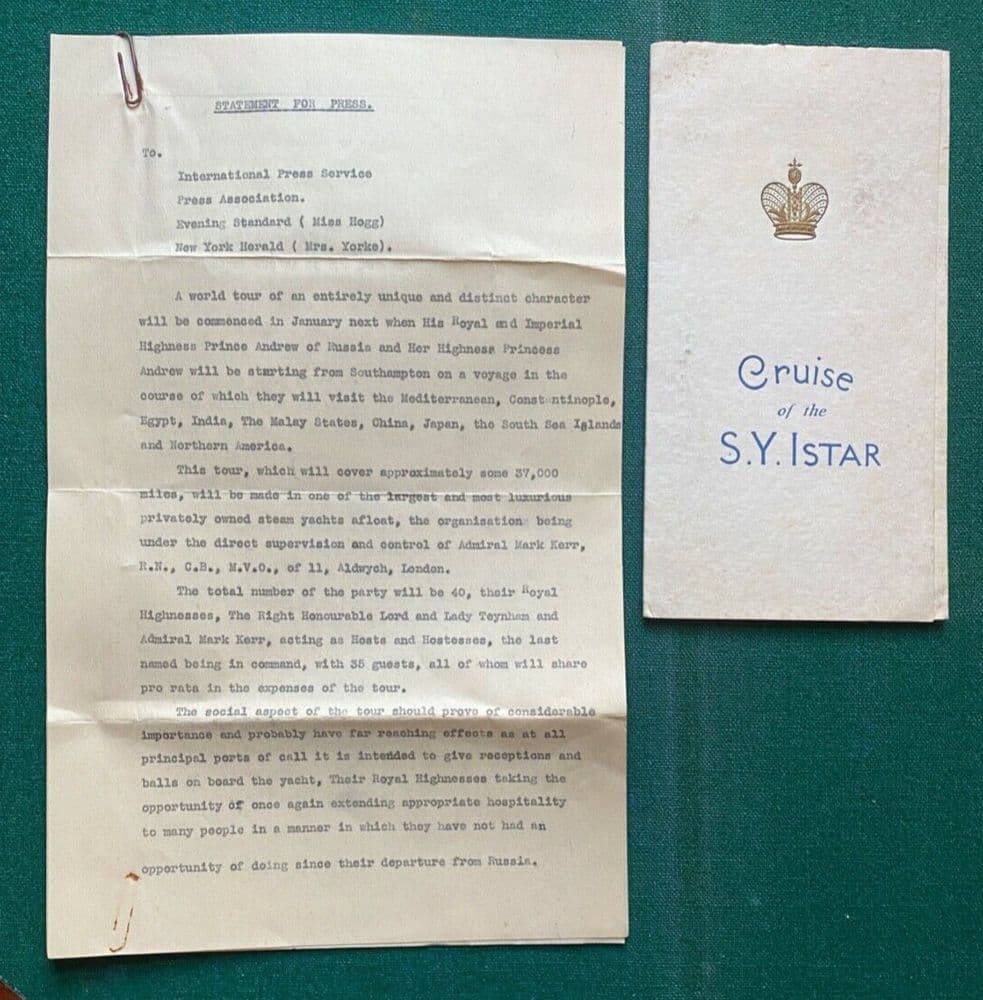 STATEMENT FOR PRESS.
To.
International Press Service
Press Association.
Evening Standard ( Miss Hogg)
New York Herald ( Mrs. Yorke).
A world tour of an entirely unique and distinct character
will be commenced in January next when His Royal and Imperial
Highness Prince Andrew of Russia and Her Highness Princess
Andrew will be starting from Southampton on a voyage in the
course of which they will visit the Mediterranean, Constantinople,
Egypt, India, The Malay States, China, Japan, the South Sea Islands
and Northern America.
This tour, which will cover approximately some 37,000
miles, will be made in one of the largest and most luxurious
privately owned steam yachts afloat, the organisation being
under the direct supervision and control of Admiral Mark Kerr,
R.N., C.B., M.V.O., of 11, Aldwych, London.
The total number of the party will be 40, their Royal
Highnesses, The Right Honourable Lord and Lady Teynham and
Admiral Mark Kerr, acting as Hosts and Hostesses, the last
named being in command, with 35 guests, all of whom will share
pro rata in the expenses of the tour.
The social aspect of the tour should prove of considerable
importance and probably have far reaching effects as at all
principal ports of call it is intended to give receptions and
balls on board the yacht, Their Royal Highnesses taking the
opportunity of once again extending appropriate hospitality
to many people in a manner in which they have not had an
opportunity of doing since their departure from Russia.
Cruise
of the
S.Y. ISTAR